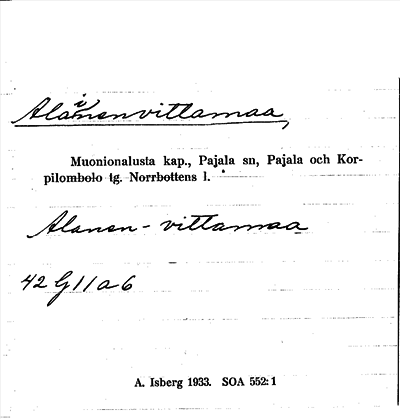 Alainenvittamaa,
Muonionalusta kap., Pajala sn, Pajala och Kor-
pilombolo tg. Norrbottens l.
Alanen - vittamaa
42 G 11 a 6
A. Isberg 1933. SOA 552: 1